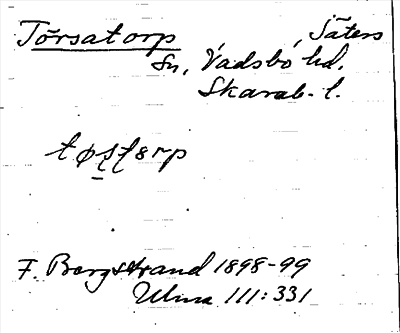 Törsatorp, Jäters
Sn, Vadsbo hd.
Skarab. l.
tøstərp
F. Bergstrand 1898-99
Ulma 111:331